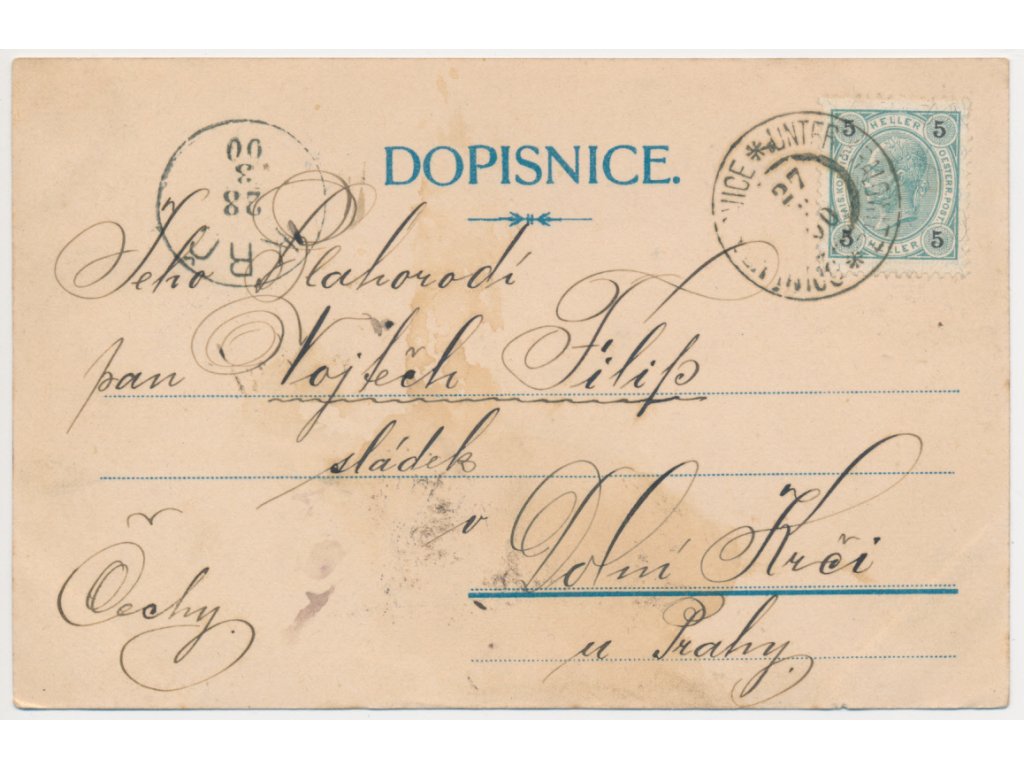 DOPISNICE.
5 HELLER 5
OESTERR. POST
5 HELLER 5
UNTER
27
00
28
3
00
KRČ
Jeho Blahorodí
pan Vojtěch Filip
sládek
v Dolní Krči
Čechy.
u Prahy.